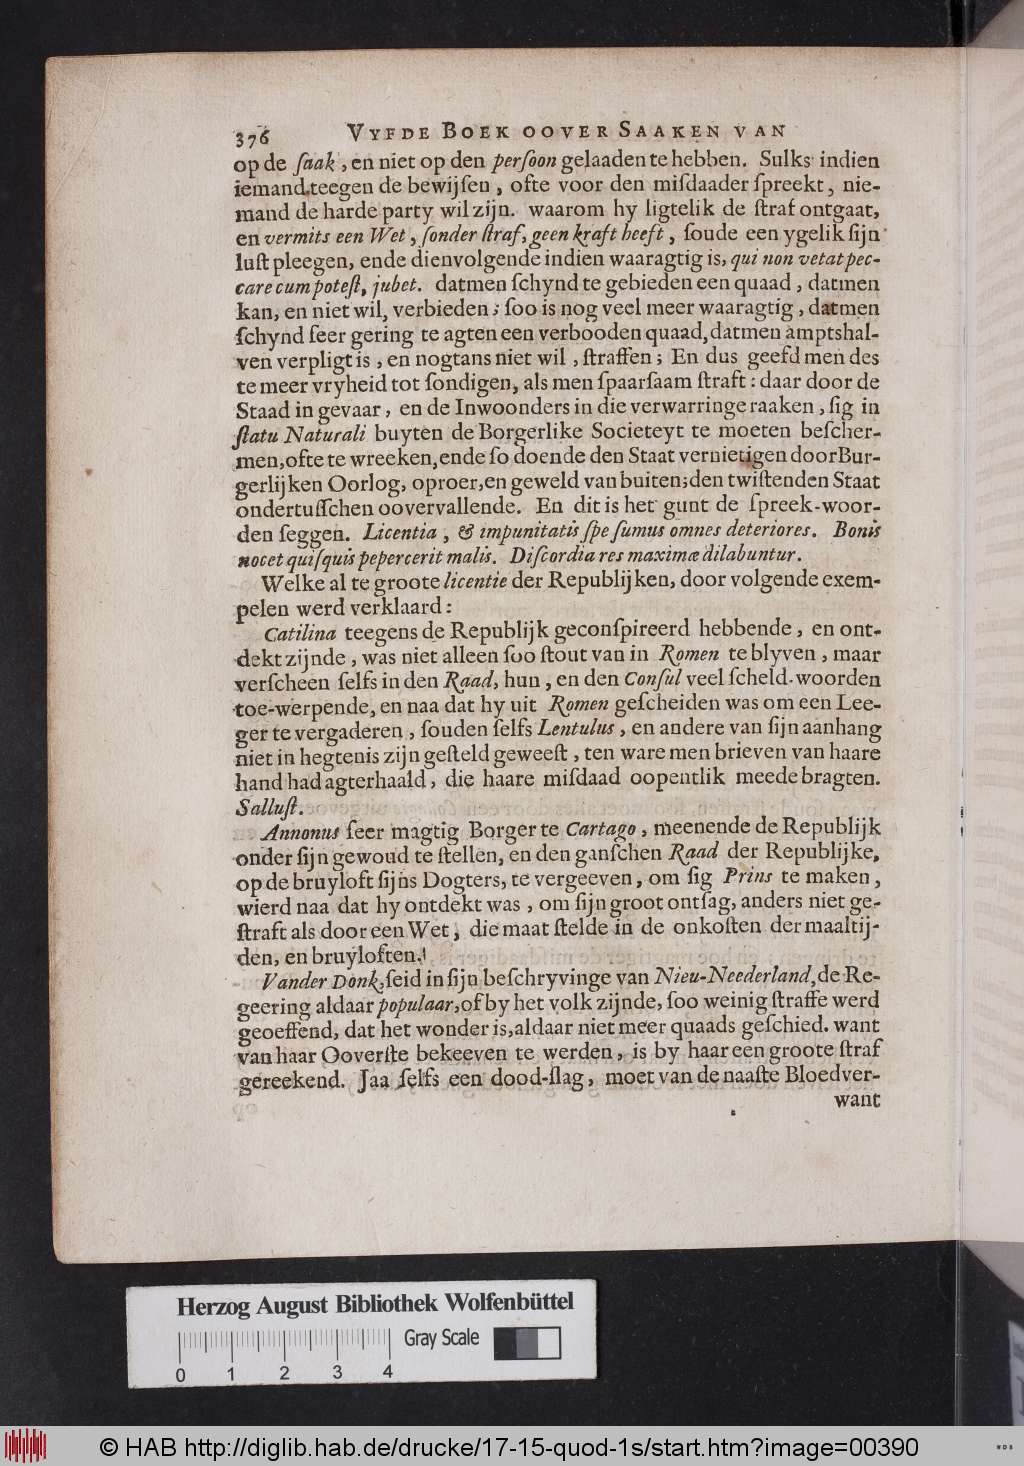 376 VYFDE BOEK OOVER SAAKEN VAN
op de ſaak, en niet op den perſoon gelaaden te hebben. Sulks indien
iemand teegen de bewijſen, ofte voor den miſdaader ſpreekt, nie-
mand de harde party wil zijn. waarom hy ligtelik de ſtraf ontgaat,
en vermits een Wet, ſonder ſtraf, geen kraft heeft, ſoude een ygelik ſijn
luſt pleegen, ende dienvolgende indien waaragtig is, qui non vetat pec-
care cum poteſt, jubet. datmen ſchynd te gebieden een quaad, datmen
kan, en niet wil, verbieden; ſoo is nog veel meer waaragtig, datmen
ſchynd ſeer gering te agten een verbooden quaad, datmen amptshal-
ven verpligt is, en nogtans niet wil, ſtraffen; En dus geefd men des
te meer vryheid tot ſondigen, als men ſpaarſaam ſtraft: daar door de
Staad in gevaar, en de Inwoonders in die verwarringe raaken, ſig in
ſtatu Naturali buyten de Borgerlike Societeyt te moeten beſcher-
men, ofte te wreeken, ende ſo doende den Staat vernietigen door Bur-
gerlijken Oorlog, oproer, en geweld van buiten; den twiſtenden Staat
ondertuſſchen oovervallende. En dit is het gunt de ſpreek-woor-
den ſeggen. Licentia, & impunitatis ſpe ſumus omnes deteriores. Bonis
nocet quiſquis pepercerit malis. Diſcordia res maximæ dilabuntur.
Welke al te groote licentie der Republijken, door volgende exem-
pelen werd verklaard:
Catilina teegens de Republijk geconſpireerd hebbende, en ont-
dekt zijnde, was niet alleen ſoo ſtout van in Romen te blyven, maar
verſcheen ſelfs in den Raad, hun, en den Conſul veel ſcheld-woorden
toe-werpende, en naa dat hy uit Romen geſcheiden was om een Lee-
ger te vergaderen, ſouden ſelfs Lentulus, en andere van ſijn aanhang
niet in hegtenis zijn geſteld geweeſt, ten ware men brieven van haare
hand had agterhaald, die haare miſdaad oopentlik meede bragten.
Salluſt.
Annonus ſeer magtig Borger te Cartago, meenende de Republijk
onder ſijn gewoud te ſtellen, en den ganſchen Raad der Republijke,
op de bruyloft ſijns Dogters, te vergeeven, om ſig Prins te maken,
wierd naa dat hy ontdekt was, om ſijn groot ontſag, anders niet ge-
ſtraft als door een Wet, die maat ſtelde in de onkoſten der maaltij-
den, en bruyloften.
Vander Donk, ſeid in ſijn beſchryvinge van Nieu-Neederland, de Re-
geering aldaar populaar, of by het volk zijnde, ſoo weinig ſtraffe werd
geoeffend, dat het wonder is, aldaar niet meer quaads geſchied. want
van haar Ooverſte bekeeven te werden, is by haar een groote ſtraf
gereekend. Jaa ſelfs een dood-ſlag, moet van de naaſte Bloedver-
want
Herzog August Bibliothek Wolfenbüttel
Gray Scale
0 1 2 3 4
© HAB http://diglib.hab.de/drucke/17-15-quod-1s/start.htm?image=00390